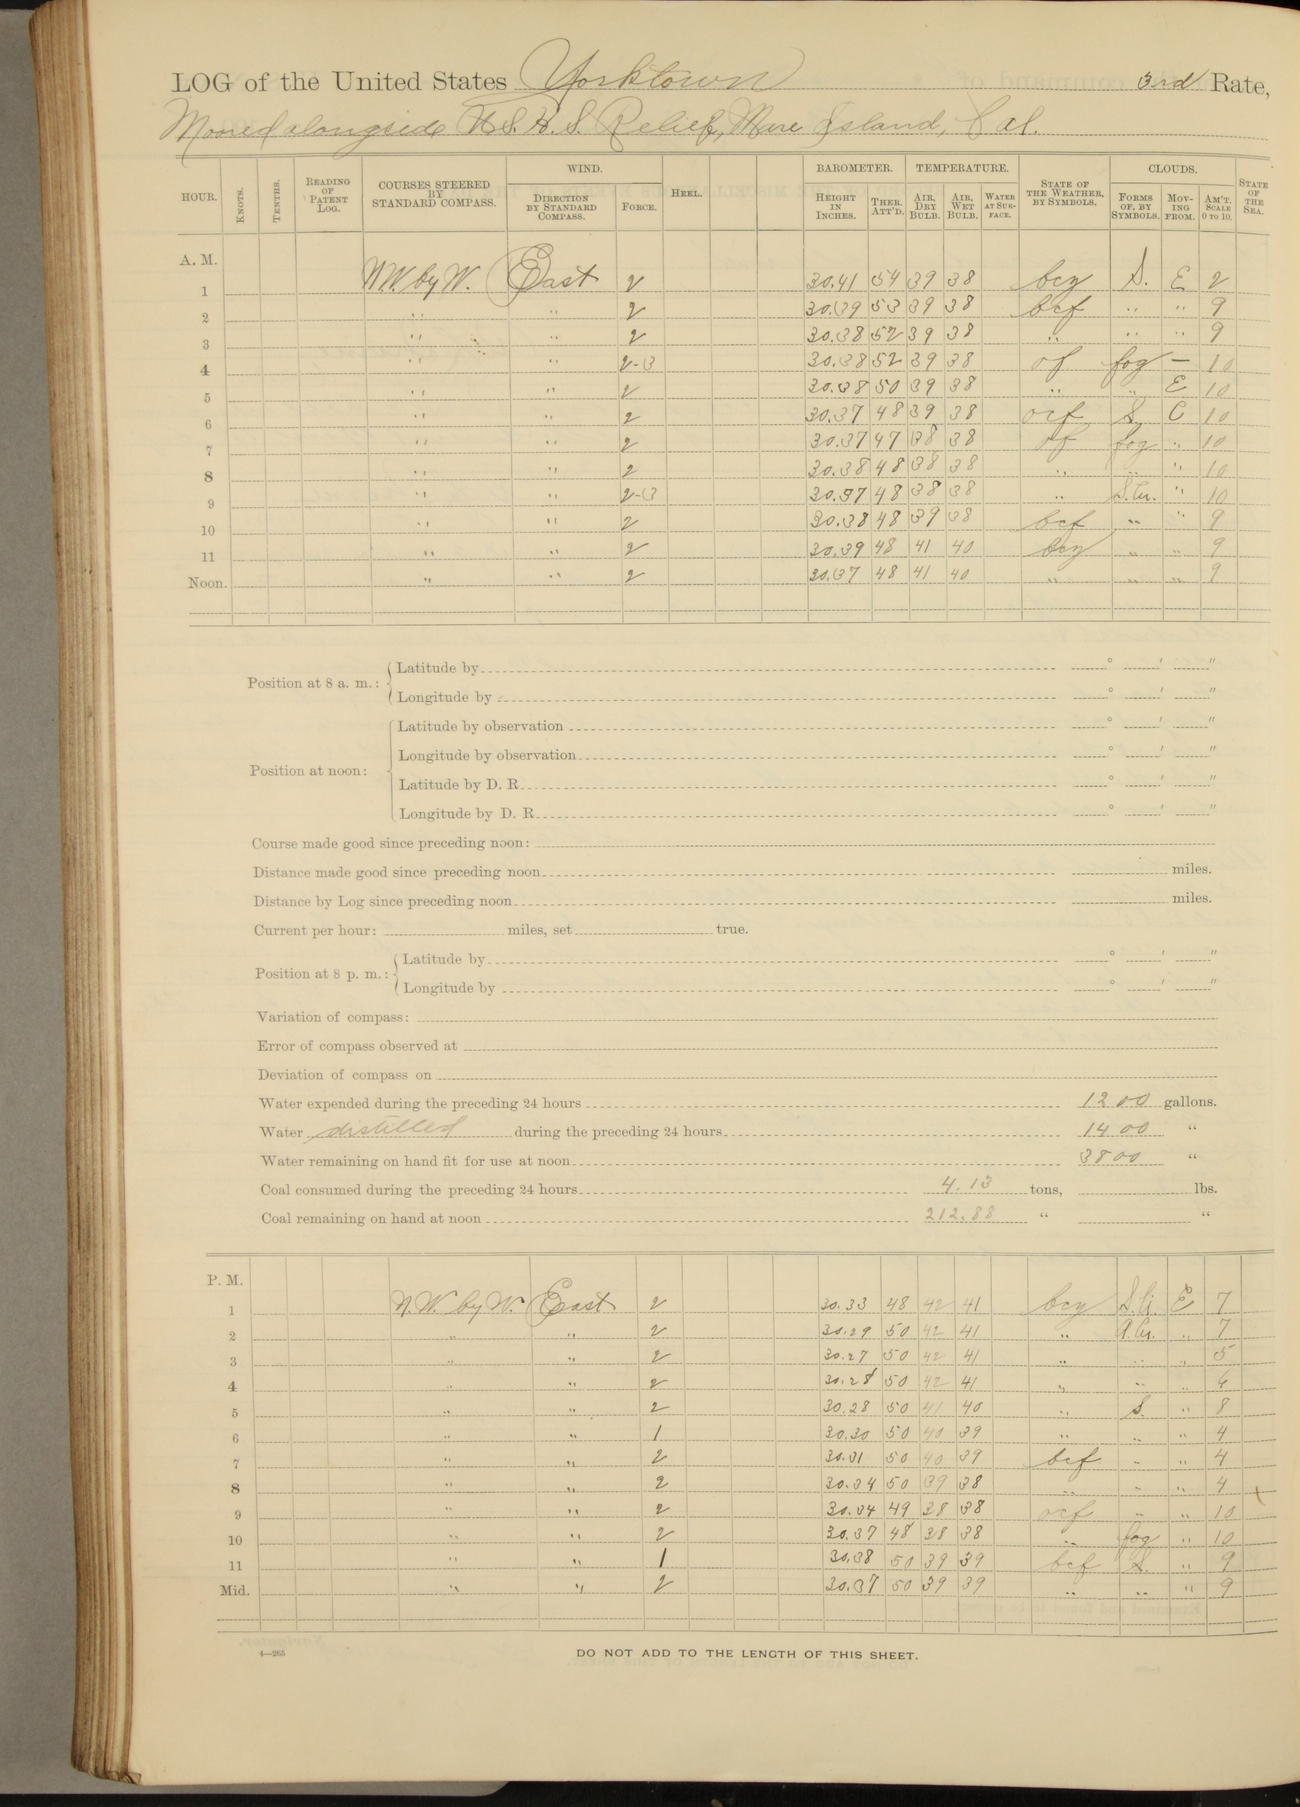 LOG of the United States Yorktown 3rd Rate,
Moored alongside U.S.H.S. Relief, Mare Island, Cal.
HOUR. KNOTS. TENTHS. READING OF PATENT LOG. COURSES STEERED BY STANDARD COMPASS. WIND. DIRECTION BY STANDARD COMPASS. FORCE. HEEL. BAROMETER. HEIGHT IN INCHES. THER. ATT'D. TEMPERATURE. AIR, DRY BULB. AIR, WET BULB. WATER AT SURFACE. STATE OF THE WEATHER, BY SYMBOLS. CLOUDS. FORMS OF, BY SYMBOLS. MOVING FROM. AM'T. SCALE 0 TO 10. STATE OF THE SEA.
A. M.
1 NW. by W. East 2 30.41 54 39 38 bcy S. E 2
2 " " 2 30.39 53 39 38 bcf " " 9
3 " " 2 30.38 52 39 38 " " " 9
4 " " 2-3 30.38 52 39 38 of fog — 10
5 " " 2 30.38 50 39 38 " " E 10
6 " " 2 30.37 48 39 38 ocf S. C 10
7 " " 2 30.37 47 38 38 of fog " 10
8 " " 2 30.38 48 38 38 " " " 10
9 " " 2-3 30.37 48 38 38 " S.Cu. " 10
10 " " 2 30.38 48 39 38 bcf " " 9
11 " " 2 30.39 48 41 40 bcy " " 9
Noon. " " 2 30.37 48 41 40 " " " 9
Position at 8 a. m.: Latitude by ° ' "
Longitude by ° ' "
Position at noon: Latitude by observation ° ' "
Longitude by observation ° ' "
Latitude by D. R. ° ' "
Longitude by D. R. ° ' "
Course made good since preceding noon:
Distance made good since preceding noon miles.
Distance by Log since preceding noon miles.
Current per hour: miles, set true.
Position at 8 p. m.: Latitude by ° ' "
Longitude by ° ' "
Variation of compass:
Error of compass observed at
Deviation of compass on
Water expended during the preceding 24 hours 1200 gallons.
Water distilled during the preceding 24 hours 1400 "
Water remaining on hand fit for use at noon 3800 "
Coal consumed during the preceding 24 hours 4.13 tons, lbs.
Coal remaining on hand at noon 212.88 " "
P. M.
1 N.W. by W. East 2 30.33 48 42 41 bcy S.Ci. E 7
2 " " 2 30.29 50 42 41 " A.Cu. " 7
3 " " 2 30.27 50 42 41 " " " 5
4 " " 2 30.28 50 42 41 " " " 6
5 " " 2 30.28 50 41 40 " S. " 8
6 " " 1 30.30 50 40 39 " " " 4
7 " " 2 30.31 50 40 39 bcf " " 4
8 " " 2 30.34 50 39 38 " " " 4
9 " " 2 30.34 49 38 38 ocf " " 10
10 " " 2 30.37 48 38 38 " fog " 10
11 " " 1 30.38 50 39 39 bcf S. " 9
Mid. " " 2 30.37 50 39 39 " " " 9
4—265 DO NOT ADD TO THE LENGTH OF THIS SHEET.